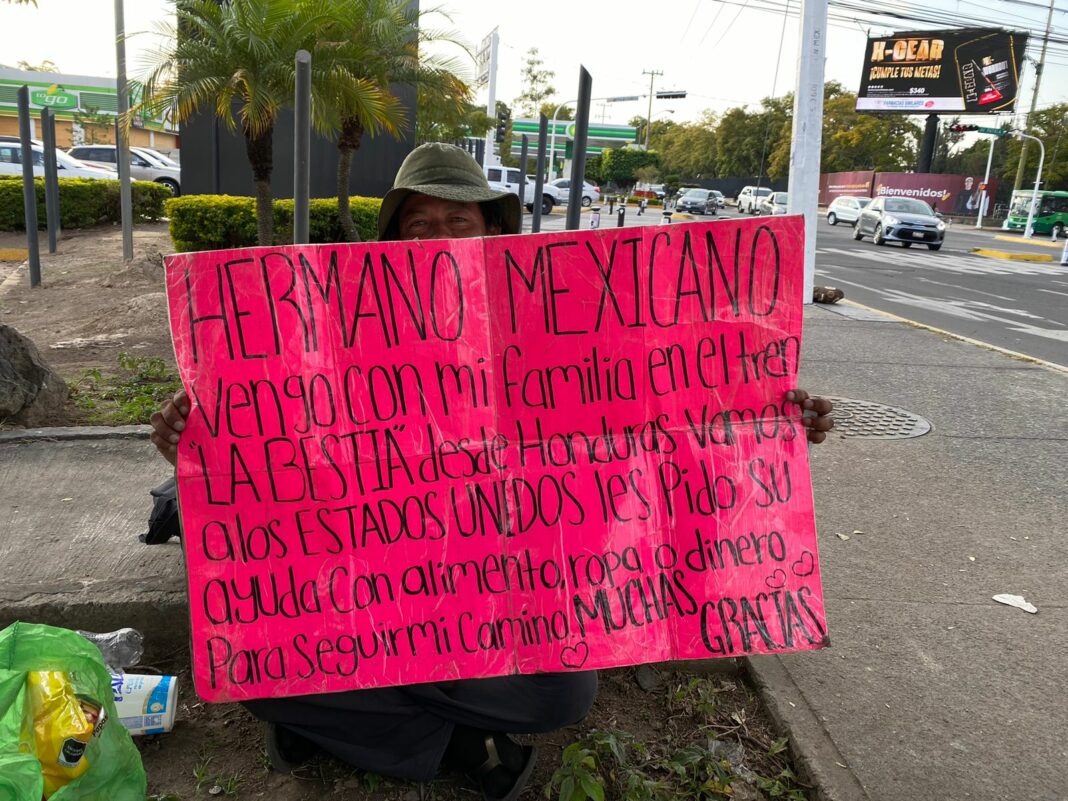 HERMANO MEXICANO
Vengo con mi familia en el tren
"LA BESTIA" desde Honduras Vamos
a los ESTADOS UNIDOS les Pido su
ayuda Con alimento, ropa o dinero
Para Seguir mi Camino. MUCHAS GRACIAS
X-GEAR
¡CUMPLE TUS METAS!
$340
FARMACIAS SIMILARES
¡Bienvenidos!
go